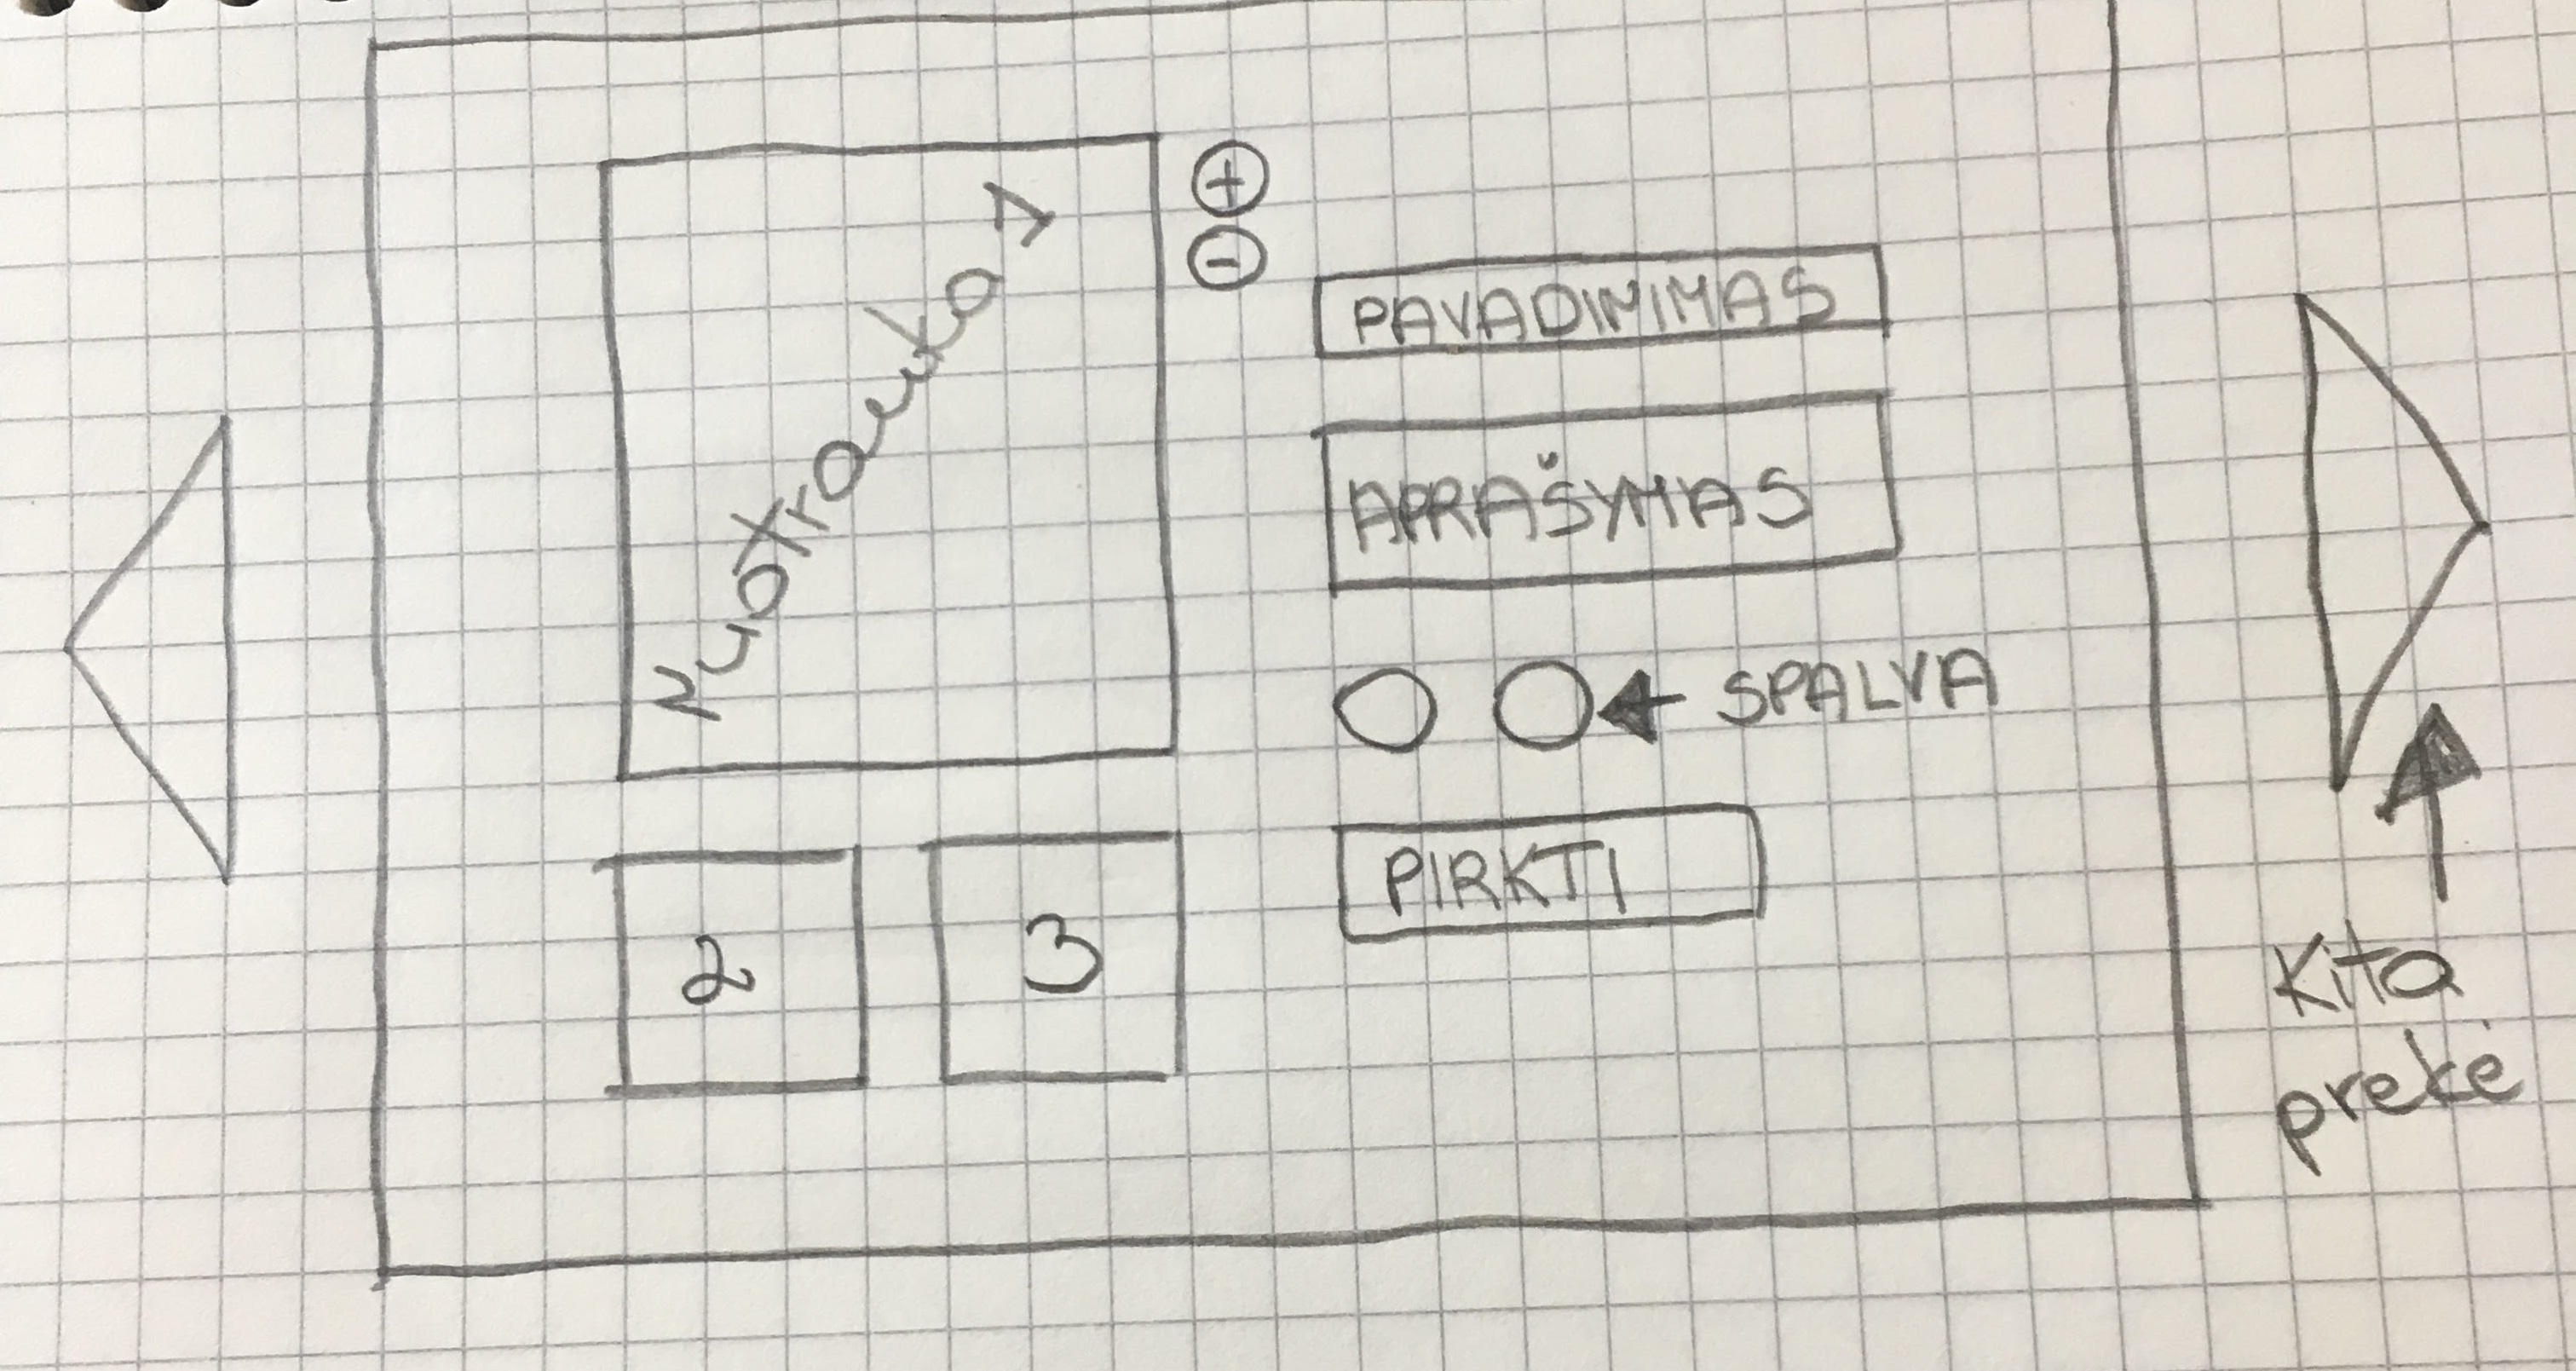 Nuotrauka 1
+
-
PAVADINIMAS
APRAŠYMAS
SPALVA
PIRKTI
2
3
Kita
prekė